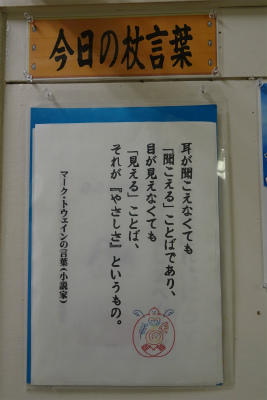 今日の杖言葉
耳が聞こえなくても
「聞こえる」ことばであり、
目が見えなくても
「見える」ことば、
それが『やさしさ』というもの。
マーク・トウェインの言葉(小説家)